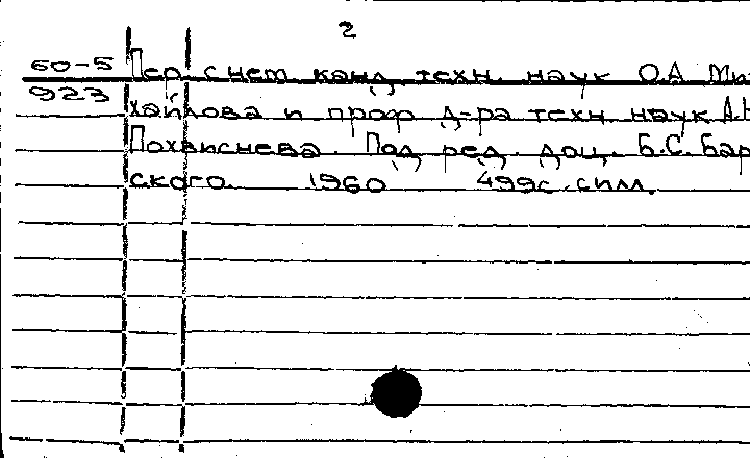 2
60-5 Пер с нем. канд. техн. наук О.А. Ми-
923 хайлова и проф. д-ра техн. наук А.Н.
Похвиснева. Под ред. доц. Б.С. Бар
ского. 1960 499с. с илл.